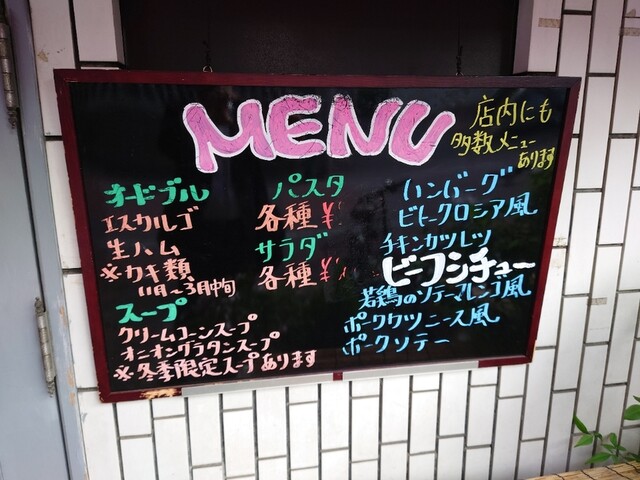 MENU
店内にも
多数メニュー
あります
オードブル
エスカルゴ
生ハム
※カキ類
11月〜3月中旬
スープ
クリームコーンスープ
オニオングラタンスープ
※冬季限定スープあります
パスタ
各種¥
サラダ
各種¥
ハンバーグ
ビトークロシア風
チキンカツレツ
ビーフシチュー
若鶏のソテーマレンゴ風
ポークウツニース風
ポークソテー